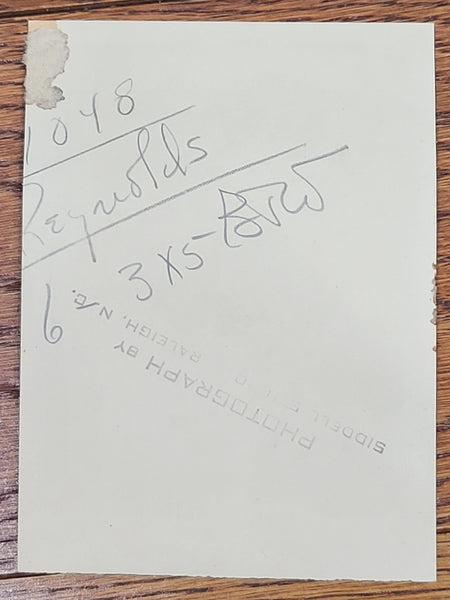 1048
Reynolds
3x5 B&W
6
PHOTOGRAPH BY
SIDDELL
RALEIGH, N.C.